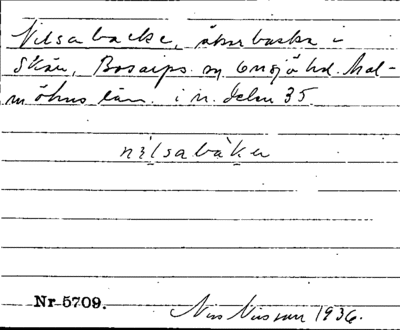 Nilsabacke, åkerbacke i
Skån, Bosarps sn Onsjö hd. Mal-
möhus län. i n. delen 35
nilsabáken
Nr 5709.
Nils Nilsson 1936.